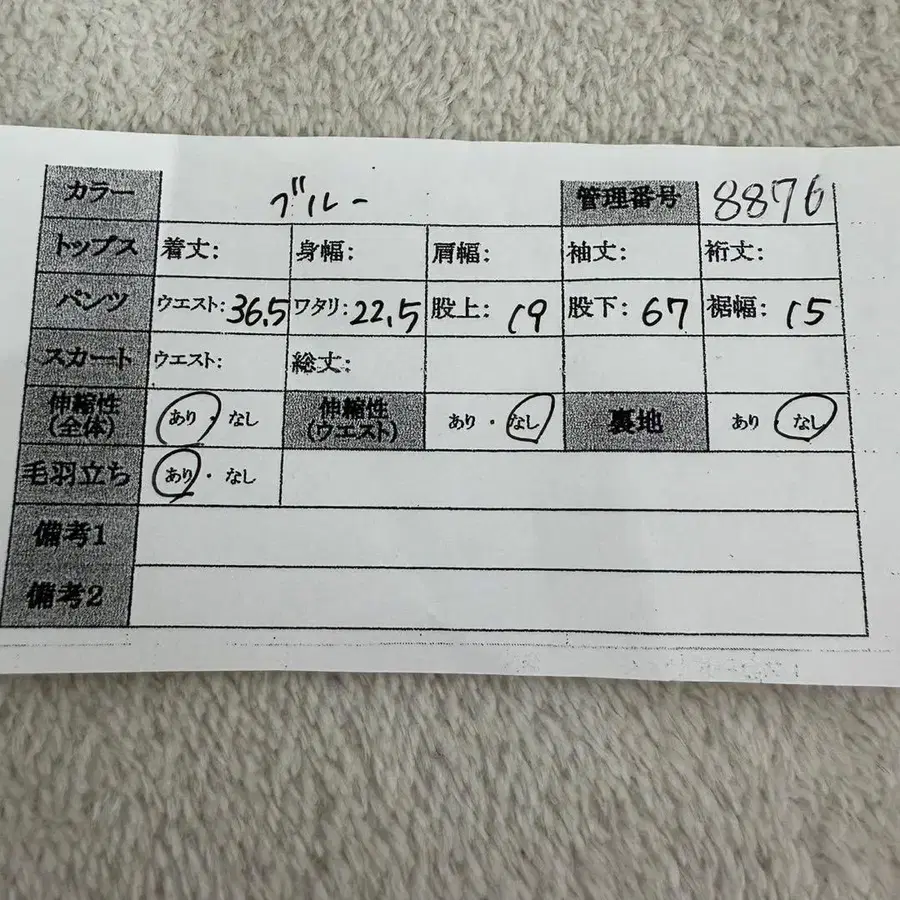 カラー ブルー 管理番号 8876
トップス 着丈: 身幅: 肩幅: 袖丈: 裄丈:
パンツ ウエスト: 36.5 ワタリ: 22.5 股上: 19 股下: 67 裾幅: 15
スカート ウエスト: 総丈:
伸縮性(全体) あり・なし 伸縮性(ウエスト) あり・なし 裏地 あり・なし
毛羽立ち あり・なし
備考1
備考2